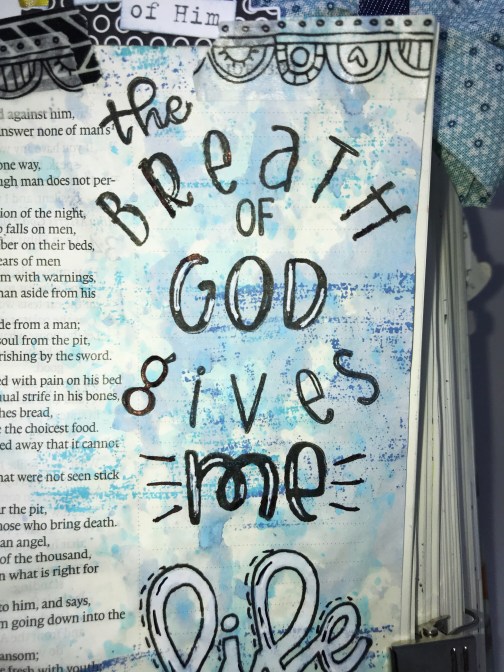 of Him
the
BReaTH
OF
GOD
gives
me
life
against him,
answer none of man's
one way,
ugh man does not per-
ion of the night,
falls on men,
ber on their beds,
ears of men
m with warnings,
man aside from his
de from a man;
soul from the pit,
rishing by the sword.
ed with pain on his bed
ual strife in his bones,
hes bread,
the choicest food.
ed away that it cannot
hat were not seen stick
r the pit,
hose who bring death.
an angel,
of the thousand,
n what is right for
to him, and says,
m going down into the
ansom;
fresh with youth;